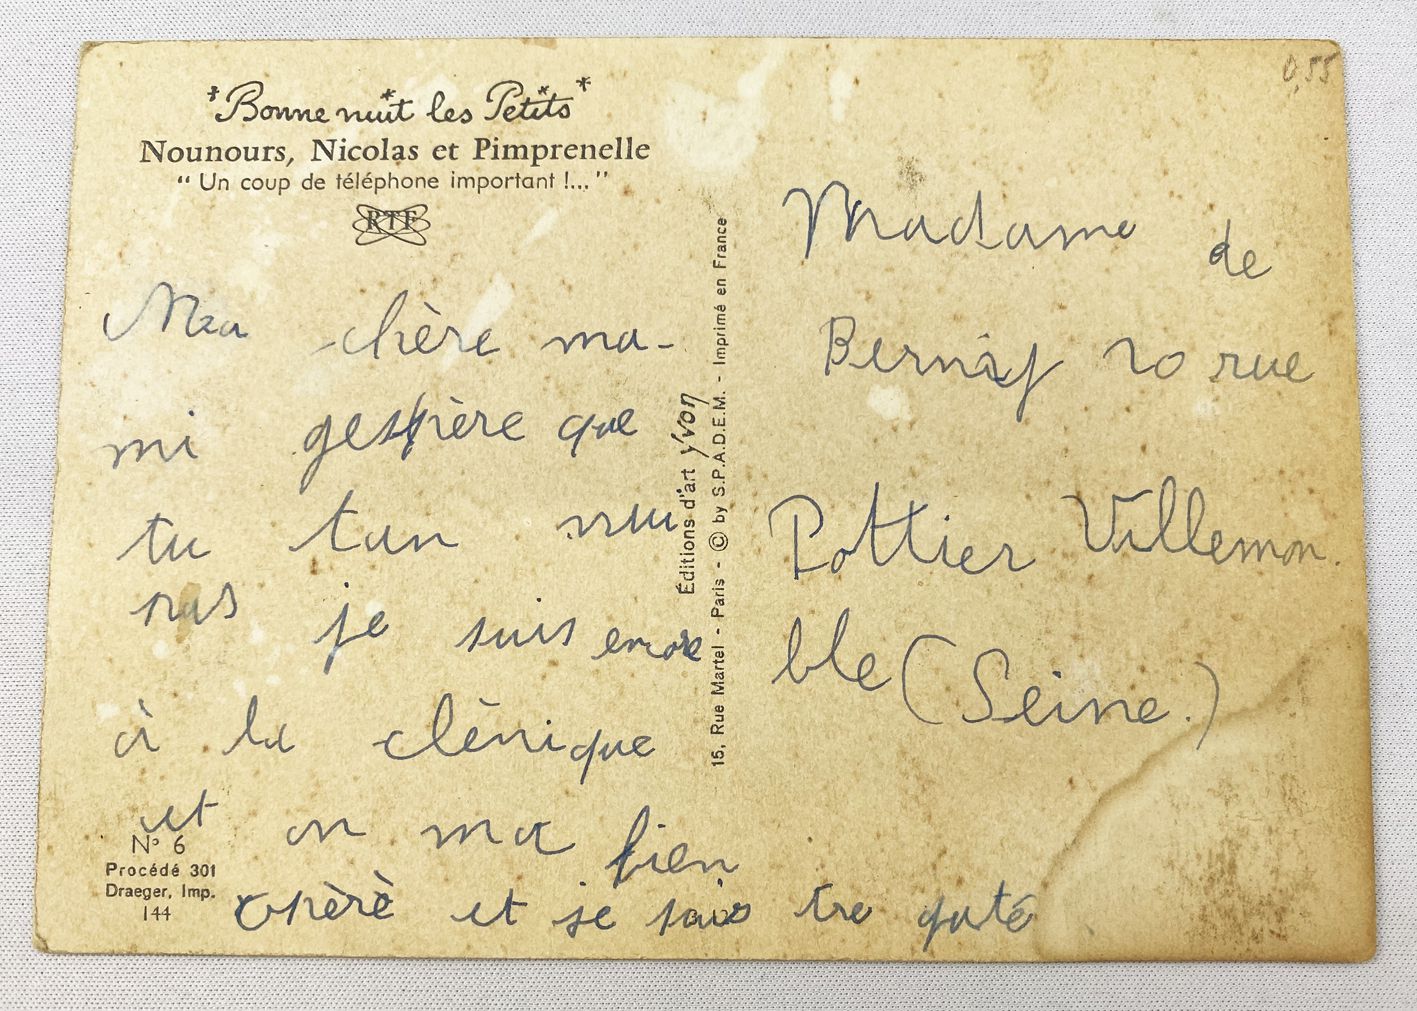 "Bonne nuit les Petits"
Nounours, Nicolas et Pimprenelle
"Un coup de téléphone important !..."
RTF
Ma chère ma-
mi gespère que
tu tan nui
pas je suis encore
à la clénique
et on ma bien
opèrè et je suis tre gaté
N° 6
Procédé 301
Draeger, Imp.
144
Éditions d'art Yvon
15, Rue Martel - Paris - © by S.P.A.D.E.M. - Imprimé en France
0,55
Madame de
Bernay 20 rue
Pottier Villemon.
ble (Seine.)